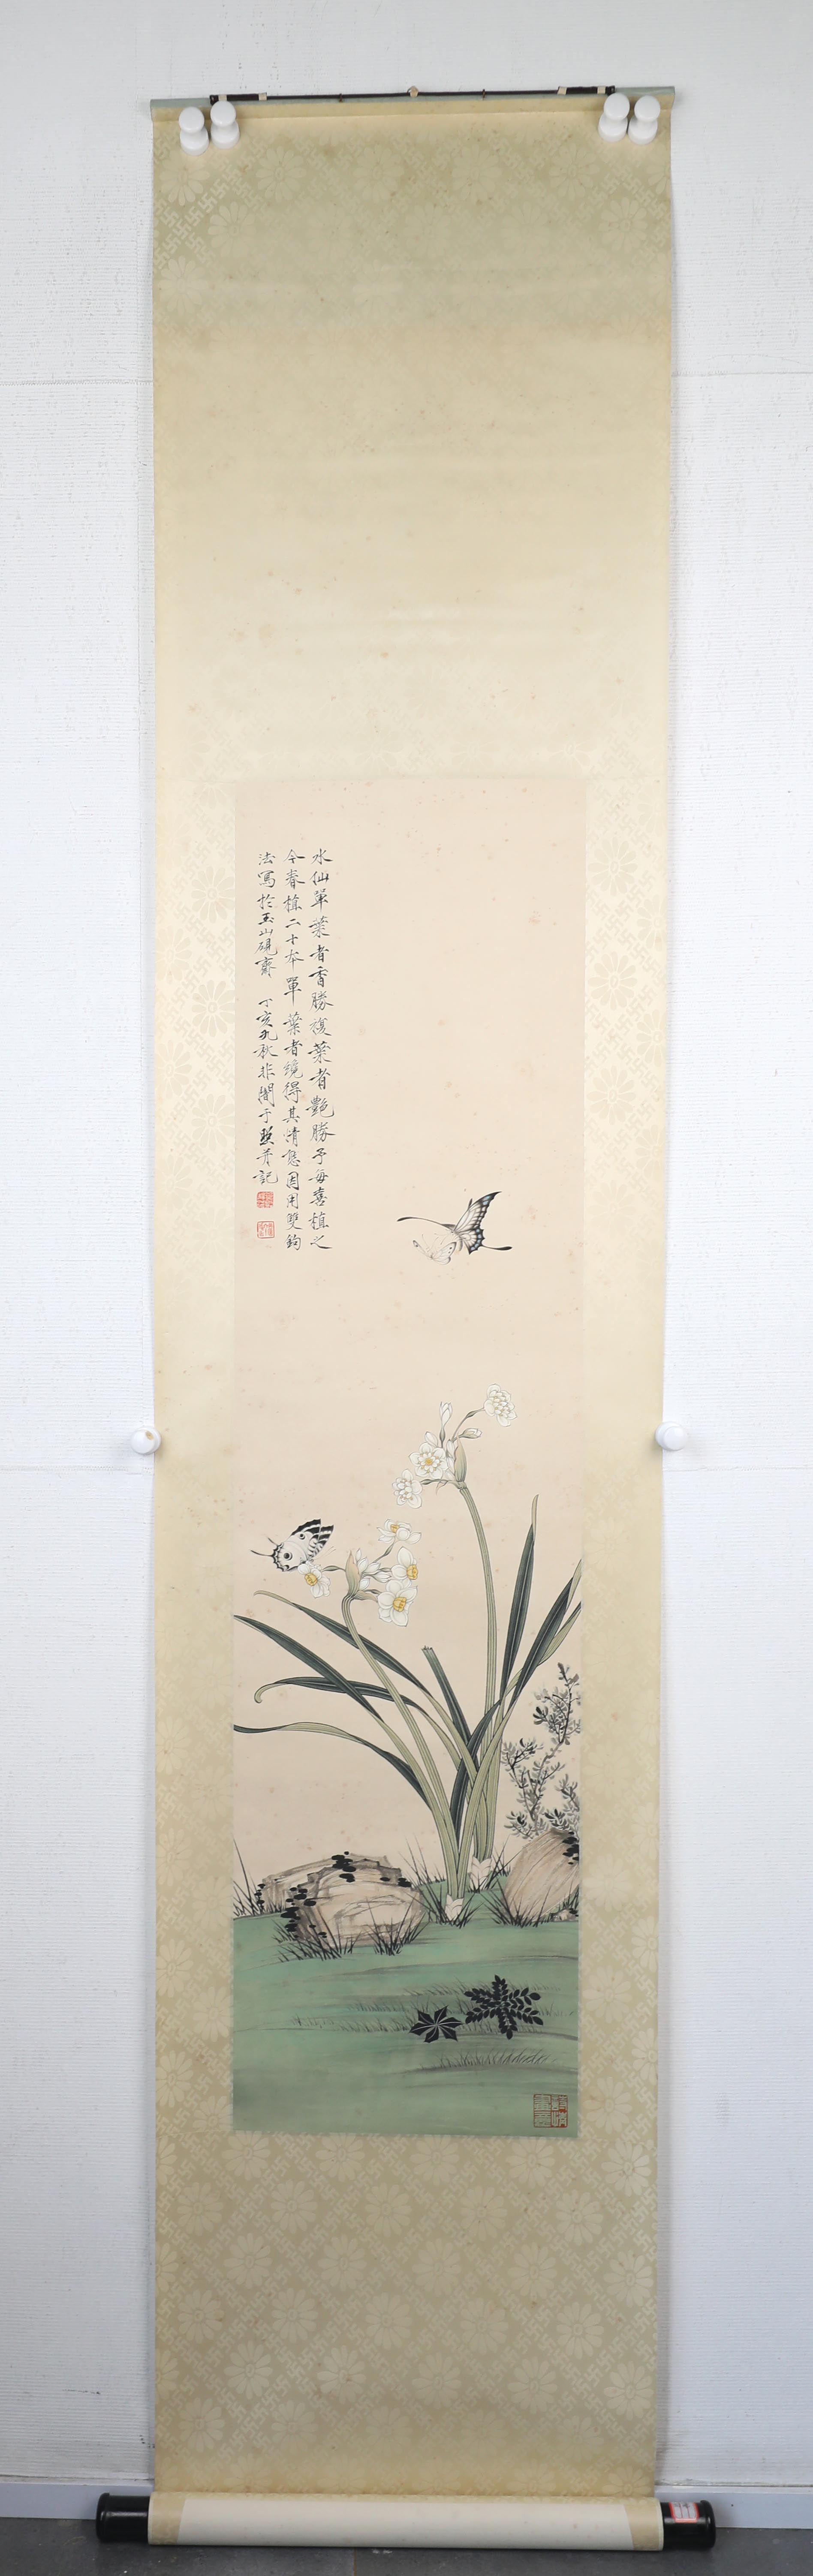 水仙單葉者香勝複葉者艷勝予每喜植之
今春植二十本單葉者纔得其情態因用雙鉤
法寫於玉山硯齋 丁亥九秋非闇于照并記